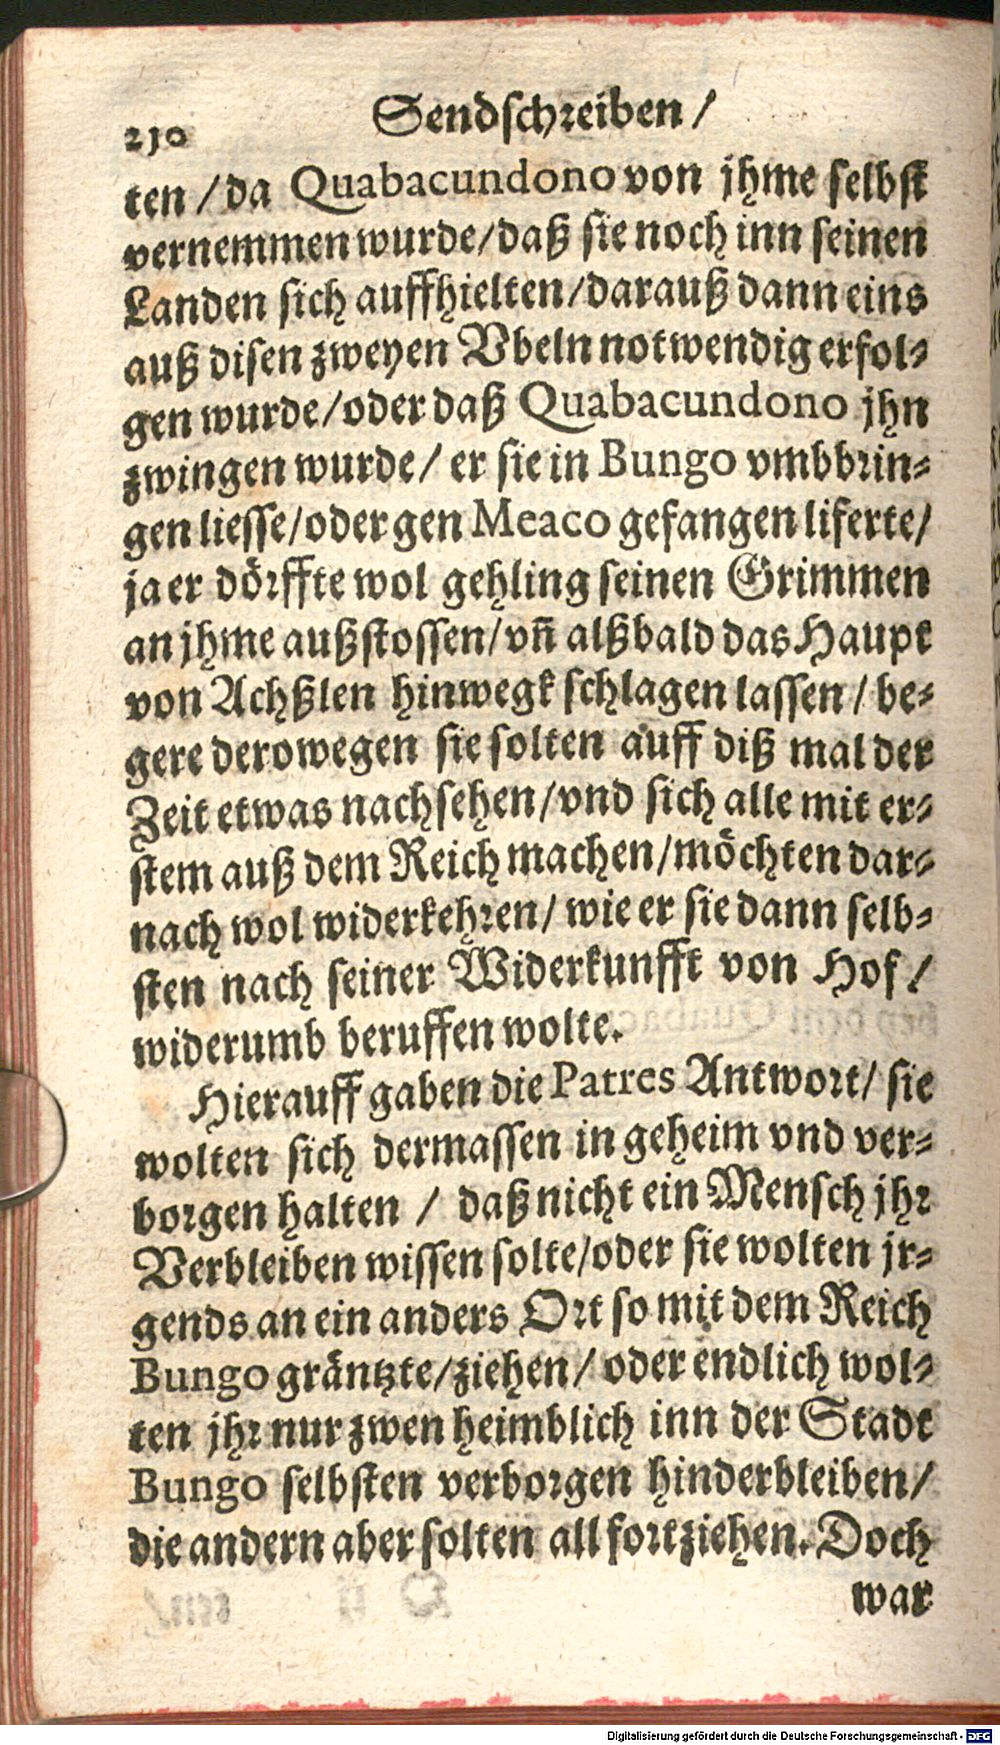 210 Sendschreiben /
ten / da Quabacundono von jhme selbst
vernemmen wurde/daß sie noch inn seinen
Landen sich auffhielten/darauß dann eins
auß disen zweyen Vbeln notwendig erfol-
gen wurde/oder daß Quabacundono jhn
zwingen wurde/ er sie in Bungo vmbbrin-
gen liesse/oder gen Meaco gefangen liferte/
ja er dörffte wol gehling seinen Grimmen
an jhme außstossen/vñ alßbald das Haupt
von Achßlen hinwegk schlagen lassen / be-
gere derowegen sie solten auff diß mal der
Zeit etwas nachsehen/vnd sich alle mit er-
stem auß dem Reich machen/möchten dar-
nach wol widerkehren/ wie er sie dann selb-
sten nach seiner Widerkunfft von Hof/
widerumb beruffen wolte.
Hierauff gaben die Patres Antwort/ sie
wolten sich dermassen in geheim vnd ver-
borgen halten / daß nicht ein Mensch jhr
Verbleiben wissen solte/oder sie wolten jr-
gends an ein anders Ort so mit dem Reich
Bungo gräntzte/ziehen/ oder endlich wol-
ten jhr nur zwen heimblich inn der Stadt
Bungo selbsten verborgen hinderbleiben/
die andern aber solten all fortziehen. Doch
war
Digitalisierung gefördert durch die Deutsche Forschungsgemeinschaft - DFG